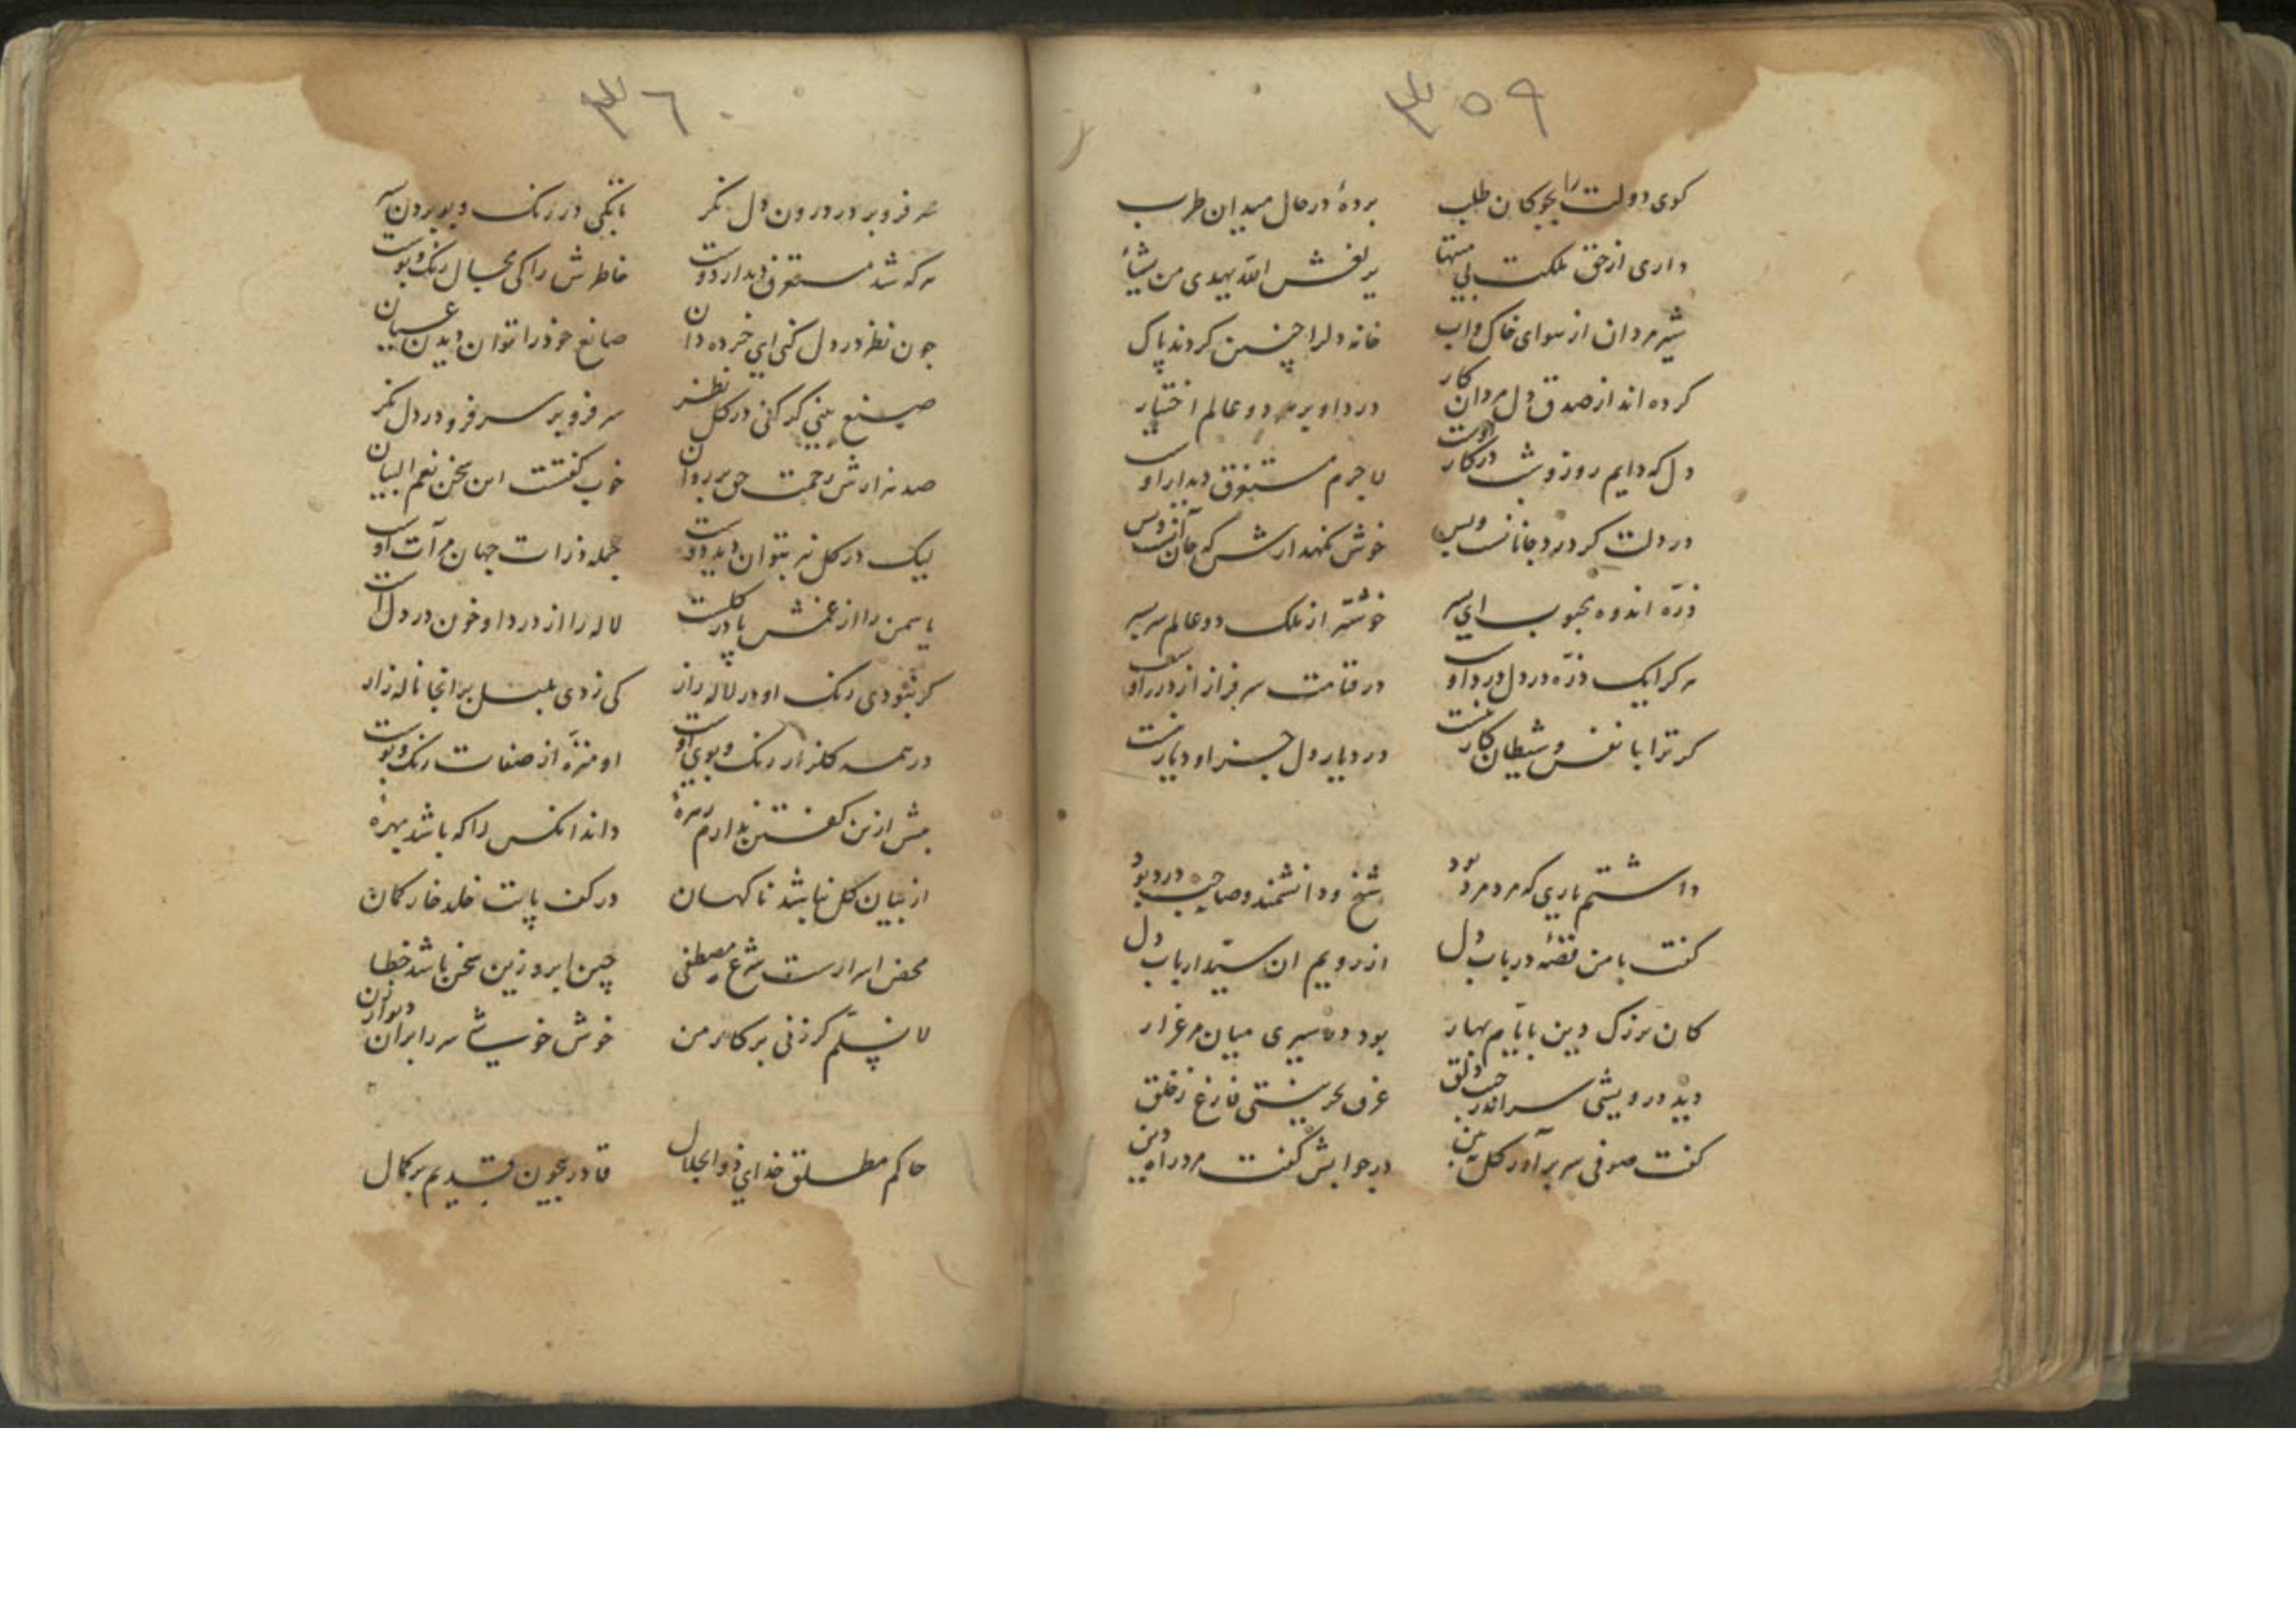 ۳۵۹
کوی دولت را بچوکان طلب بردهٔ در حال میدان طرب
داری از حق ملکت بی منتها بر نفس الله یهدی من یشاء
شیر مردان از سوای خاک و اب خانه دلرا چنین کردند پاک
کرده اند از صدق دل مردان کار درد او بر هر دو عالم اختیار
دل که دایم روز و شب در کار اوست لاجرم مستغرق دیدار اوست
در دلت کر درد جانانست و بس خوش نکهدارش که جان آنست و بس
ذرّه اندوه محبوب ای پسر خوشتر از ملک دو عالم سر بسر
هر کرا یک ذرّه در دل درد اوست در قیامت سرفراز از درد اوست
کر ترا با نفس و شیطان کار نیست در دیار دل جز او دیار نیست
داشتم یاری که مرد مرد بود شیخ و دانشمند و صاحب درد بود
کفت با من قصّهٔ در باب دل از رویم ان سیّد ارباب دل
کان بزرک دین بایّام بهار بود در سیری میان مرغزار
دید درویشی سر اندر جیب دلق غرق بحر نیستی فارغ ز خلق
کفت صوفی سر برآور کل ببین در جوابش کفت مرد راه بین
۳۶۰
سر فرو بر در درون دل نکر تا بکی در رنک و بو بردن بسر
هر که شد مستغرق دیدار دوست خاطرش را کی بحیال رنک و بوست
چون نظر در دل کنی ای خرده دان صانع خود را توان دیدن عیان
صنع بینی کر کنی در کل نظر سر فرو بر سر فرو در دل نکر
صد هزارش رحمت حق بر روان خوب کفتست این سخن نعم البیان
لیک در کل نیز بتوان دید دوست جمله ذرات جهان مرآت اوست
یاسمن را از غمش پا در کلست لاله را از درد او خون در دل است
کر نبودی رنک او در لاله زار کی زدی بلبل بر انجا ناله زار
در همه کلزار رنک و بوی اوست او منزّه از صفات رنک و بوست
بیش ازین کفتن ندارم زهرهٔ داند انکس را که باشد بهرهٔ
از بیان کل نباشد ناکهان در کف پایت خلد خار کمان
محض اسرارست شرع مصطفی چین ابرو زین سخن باشد خطا
لا نسلّم کر زنی بر کار من خوش خوشی سر را بران دیوار زن
حاکم مطلق خدای ذو الجلال قادر بیچون قدیم بر کمال